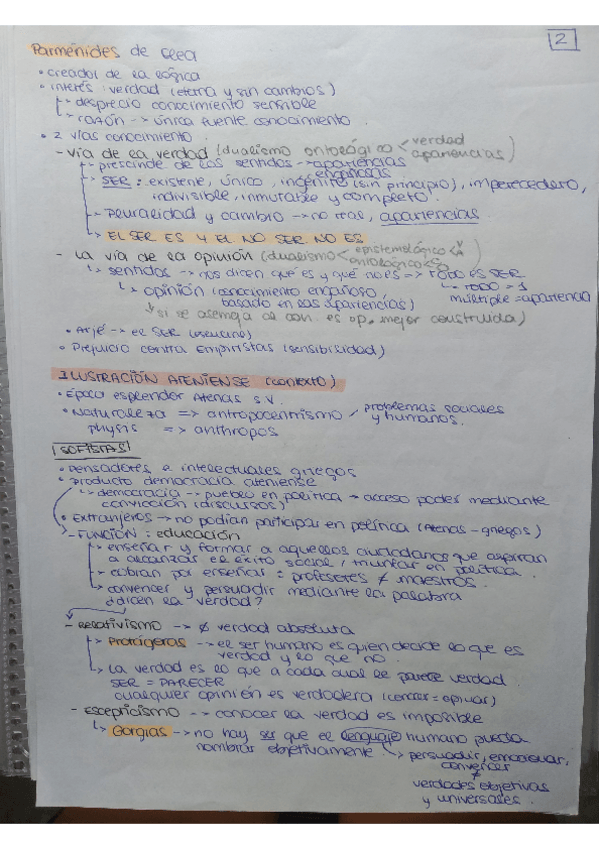 2
Parménides de Elea
• creador de la lógica
• interés: verdad (eterna y sin cambios)
↳ desprecio conocimiento sensible
↳ razón --> única fuente conocimiento.
• 2 vías conocimiento.
- vía de la verdad (dualismo ontológico < verdad
apariencias)
↳ prescinde de los sentidos --> apariencias
engañosas
↳ SER: existente, único, ingénito (sin principio), imperecedero,
indivisible, inmutable y completo.
↳ Pluralidad y cambio --> no real, apariencias
↳ EL SER ES Y EL NO SER NO ES
- La vía de la opinión (dualismo < epistemológico
ontológico
↳ sentidos --> nos dicen qué es y qué no es => TODO ES SER
↳ opinión (conocimiento engañoso
↳ TODO = 1
basado en las apariencias)
múltiple = apariencia
↓ si se asemeja al con. es op. mejor construida)
• Arjé --> el SER
• Prejuicio contra Empiristas (sensibilidad)
ILUSTRACIÓN ATENIENSE (contexto)
• Época esplendor Atenas s.V.
• Naturaleza => antropocentrismo / problemas sociales
y humanos.
physis => anthropos
SOFISTAS
• Pensadores e intelectuales griegos
• Producto democracia ateniense
↳ democracia --> pueblo en política -> acceso podes mediante
convicción (discursos)
• Extranjeros --> no podían participar en política (Atenas - griegos)
- FUNCIÓN: educación
↳ enseñar y formar a aquellos ciudadanos que aspiran
a alcanzar el éxito social / triunfar en política.
↳ cobran por enseñar: profesores ≠ maestros.
↳ convencer y persuadir mediante la palabra
¿dicen la verdad?
- Relativismo --> ∅ verdad absoluta
↳ Protágoras --> el ser humano es quien decide lo que es
verdad y lo que no.
↳ La verdad es lo que a cada cual le parece verdad
SER = PARECER
cualquier opinión es verdadera (conocer = opinar)
- Escepticismo --> conocer la verdad es imposible
↳ Gorgias --> no hay ser que el lenguaje humano pueda
nombrar objetivamente.
↳ persuadir, emocionar,
convencer
≠
verdades objetivas
y universales.